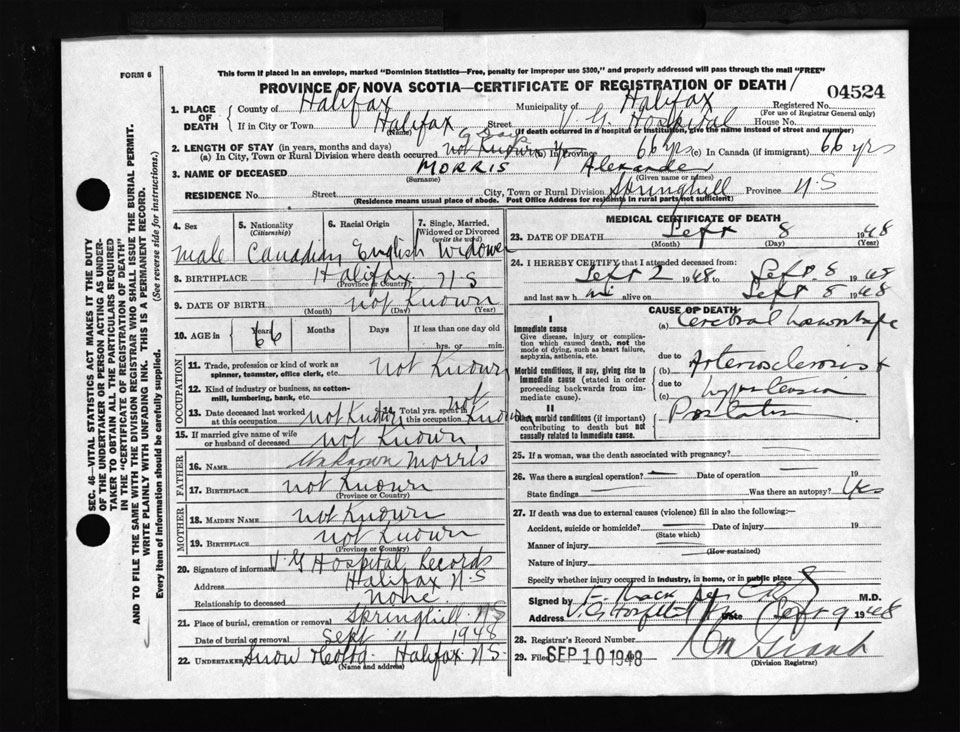 FORM 6
This form if placed in an envelope, marked "Dominion Statistics—Free, penalty for improper use $300," and properly addressed will pass through the mail "FREE"
PROVINCE OF NOVA SCOTIA—CERTIFICATE OF REGISTRATION OF DEATH
04524
1. PLACE OF DEATH
County of Halifax Municipality of Halifax Registered No.
(For use of Registrar General only)
If in City or Town Halifax Street V. G. Hospital House No.
(Name) (If death occurred in a hospital or institution, give the name instead of street and number)
2. LENGTH OF STAY (in years, months and days)
(a) In City, Town or Rural Division where death occurred 6 days not Known (b) In Province 66 yrs (c) In Canada (if immigrant) 66 yrs
3. NAME OF DECEASED MORRIS Alexander
(Surname) (Given name or names)
RESIDENCE No. Street City, Town or Rural Division Springhill Province N.S
(Residence means usual place of abode. Post Office Address for residents in rural parts not sufficient)
4. Sex male
5. Nationality (Citizenship) Canadian
6. Racial Origin English
7. Single, Married, Widowed or Divorced (write the word) Widower
8. BIRTHPLACE Halifax N S
(Province or Country)
9. DATE OF BIRTH not Known
(Month) (Day) (Year)
10. AGE in Years 66 Months Days If less than one day old
hrs. or min.
OCCUPATION
11. Trade, profession or kind of work as spinner, teamster, office clerk, etc. not Known
12. Kind of industry or business, as cotton-mill, lumbering, bank, etc.
13. Date deceased last worked at this occupation not Known 14. Total yrs. spent in this occupation not Known
15. If married give name of wife or husband of deceased not Known
FATHER
16. NAME Unknown Morris
17. BIRTHPLACE not Known
(Province or Country)
MOTHER
18. MAIDEN NAME not Known
19. BIRTHPLACE not Known
(Province or Country)
20. Signature of informant V G Hospital Records
Address Halifax N S
Relationship to deceased none
21. Place of burial, cremation or removal Springhill NS
Date of burial or removal Sept 11 1948
22. UNDERTAKER Snow & Co Ltd. Halifax N.S.
(Name and address)
MEDICAL CERTIFICATE OF DEATH
23. DATE OF DEATH Sept 8 1948
(Month) (Day) (Year)
24. I HEREBY CERTIFY that I attended deceased from:
Sept 2 1948 to Sept 8 1948
and last saw him alive on Sept 8 1948
CAUSE OF DEATH
I
Immediate cause
Give disease, injury or complication which caused death, not the mode of dying, such as heart failure, asphyxia, asthenia, etc.
(a) Cerebral haemorrhage
due to
Morbid conditions, if any, giving rise to immediate cause (stated in order proceeding backwards from immediate cause).
(b) Arteriosclerosis +
due to
(c) hypertension
II
Other morbid conditions (if important) contributing to death but not causally related to immediate cause.
25. If a woman, was the death associated with pregnancy?
26. Was there a surgical operation — Date of operation — 19
State findings — Was there an autopsy? Yes
27. If death was due to external causes (violence) fill in also the following:—
Accident, suicide or homicide? Date of injury 19
(State which)
Manner of injury
(How sustained)
Nature of injury
Specify whether injury occurred in industry, in home, or in public place
Signed by M.D.
Address V. G. Hospital Date Sept 9 1948
28. Registrar's Record Number
29. Filed SEP 10 1948
(Division Registrar)
SEC. 46—VITAL STATISTICS ACT MAKES IT THE DUTY
OF THE UNDERTAKER OR PERSON ACTING AS UNDER-
TAKER TO OBTAIN ALL THE PARTICULARS REQUIRED
IN THE "CERTIFICATE OF REGISTRATION OF DEATH"
AND TO FILE THE SAME WITH THE DIVISION REGISTRAR WHO SHALL ISSUE THE BURIAL PERMIT.
WRITE PLAINLY WITH UNFADING INK. THIS IS A PERMANENT RECORD.
Every item of information should be carefully supplied. (See reverse side for instructions.)